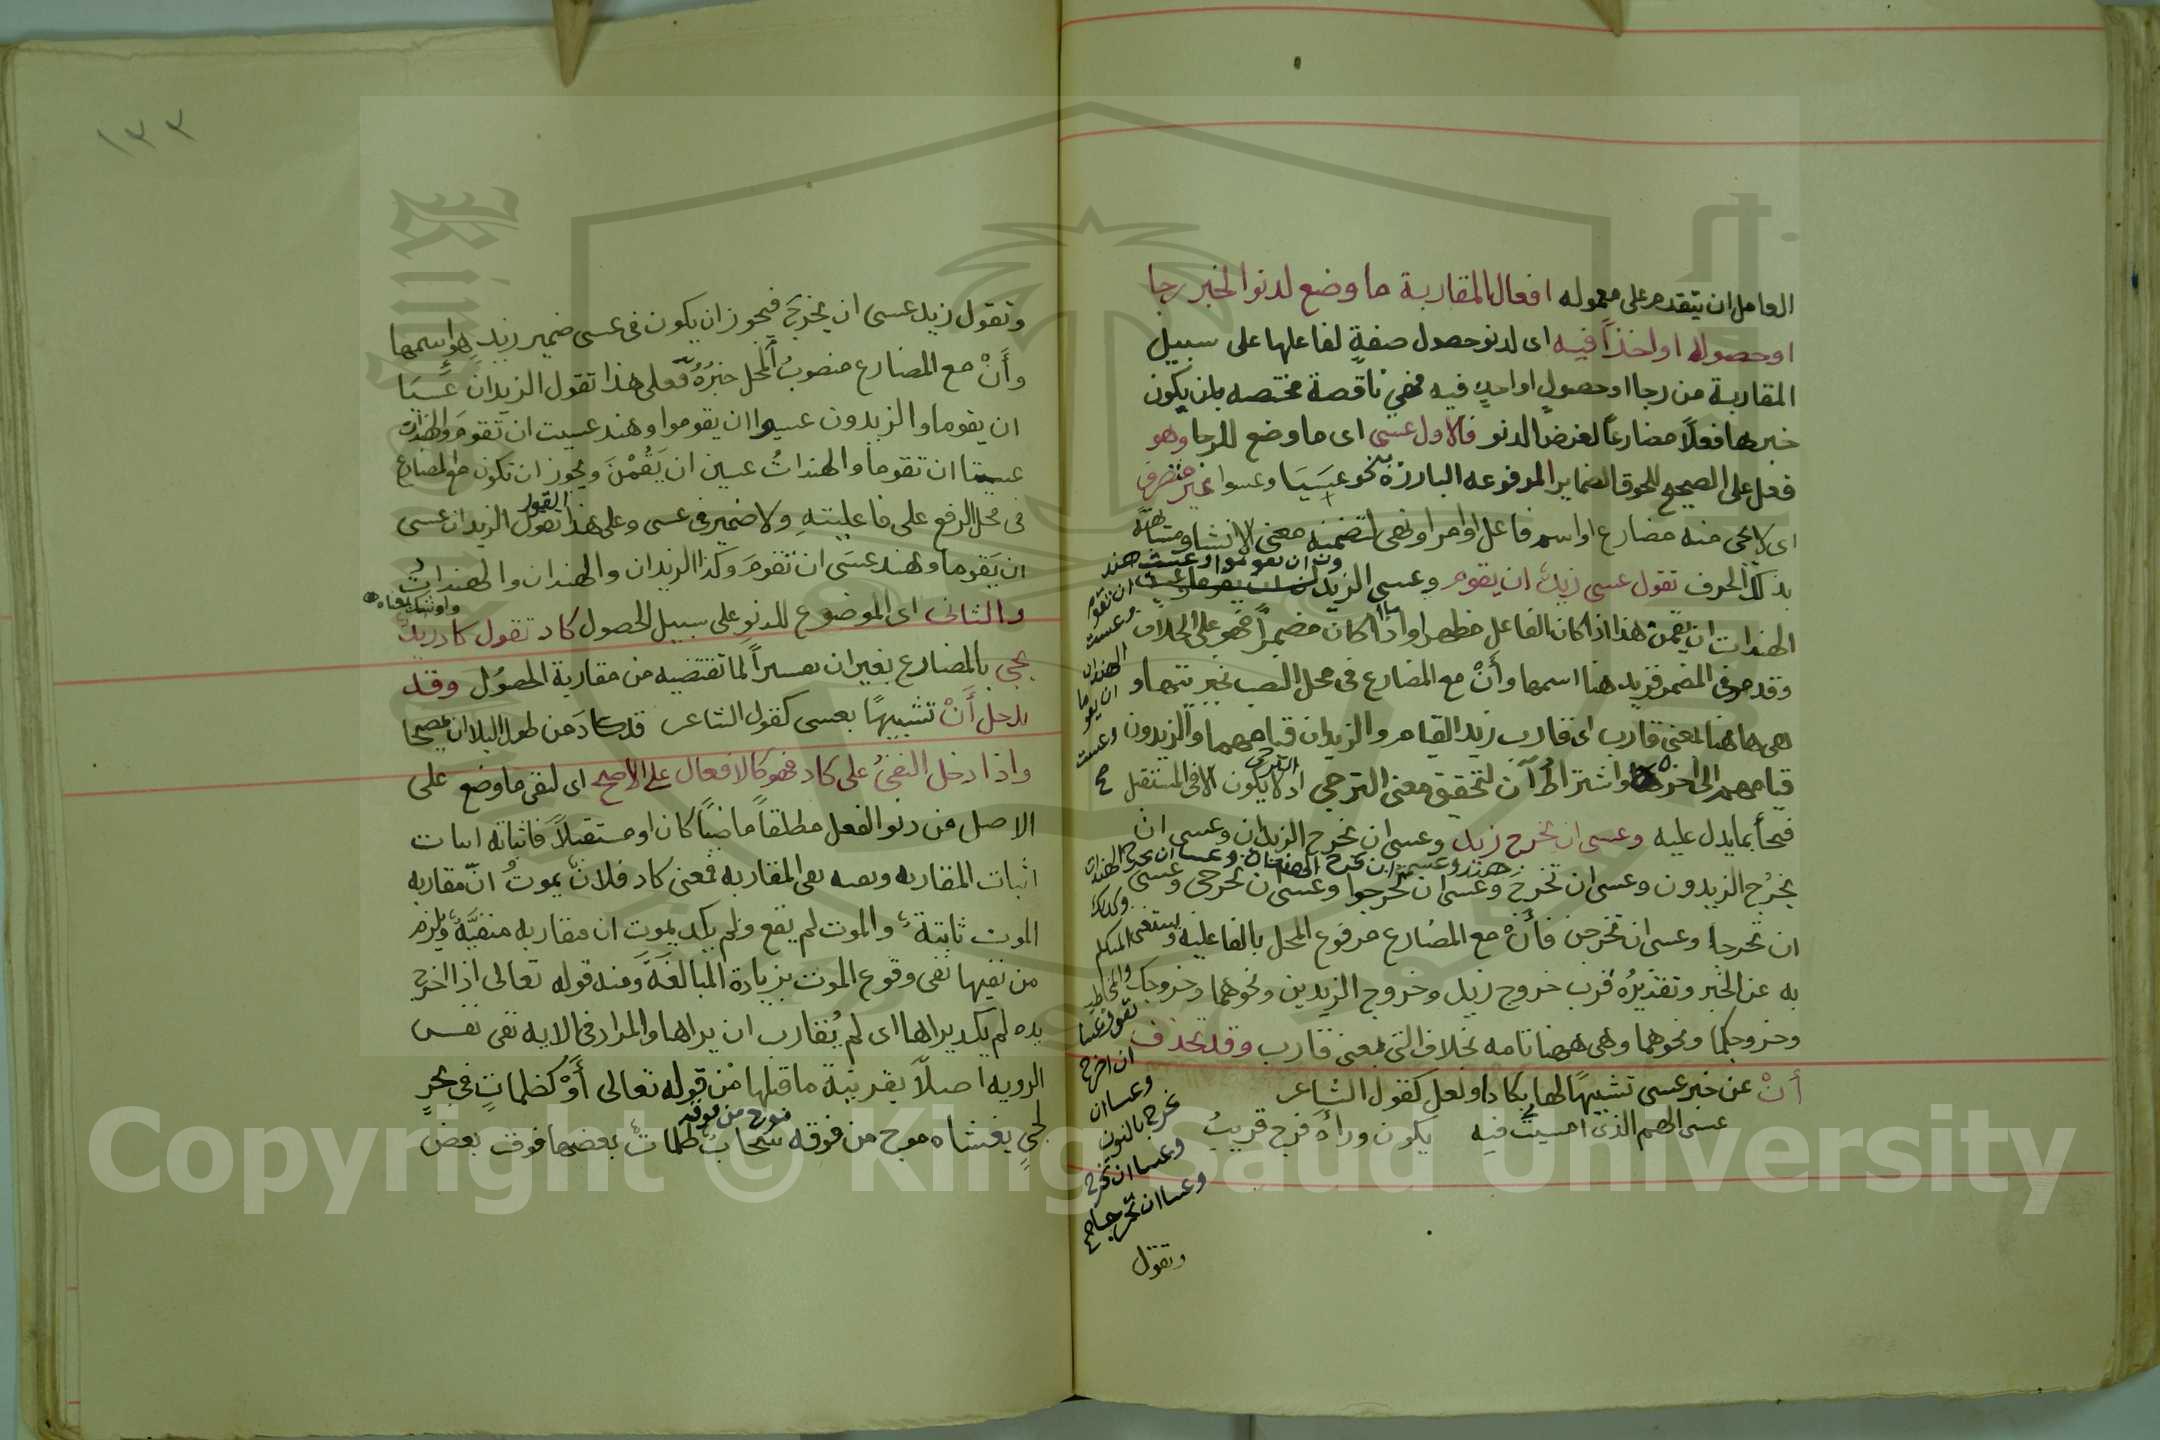 العامل ان يتقدم على معموله افعال المقاربة ما وضع لدنو الخبر رجا
او حصولا او اخذا فيه اى لدنو حصول صفةٍ لفاعلها على سبيل
المقاربة من رجا او حصول او اخذ فيه فهى ناقصة مختصه بان يكون
خبرها فعلًا مضارعًا لغرض الدنو فالاول عسى اى ما وضع للرجا وهو
فعل على الصحيح للحوق الضماير المرفوعه البارزة به نحو عسَيَا وعسوا غير متصرف
اى لا يجى منه مضارع او اسم فاعل او امر او نهى لتضمنه معنى الانشا ومشابهته
بذلك الحرف تقول عسى زيدٌ ان يقوم وعسى الزيدان
الهندات ان يقمن هذا اذا كان الفاعل مظهرا واما اذا كان مضمرًا فهو على الخلاف
وقد مر فى المضمر فزيد هنا اسمها وأنْ مع المضارع فى محل النصب
هى هاهنا بمعنى قارب اى قارب زيد القيام والزيدان قيامهما والزيدون
قيامهم الى اخره واشتراط أن لتحقق معنى الترجى اذ لا يكون الا فى المستقبل
فجأ بما يدل عليه وعسى ان يخرج زيد وعسى ان يخرج الزيدان وعسى ان
يخرُج الزيدون وعسى ان تخرج وعسى ان تخرجوا وعسى ان تخرجى وعسى
ان تخرجا وعسى ان تخرجن فأنْ مع المضارع مرفوع المحل بالفاعليه
به عن الخبر وتقديرُه قرب خروج زيد وخروج الزيدين ونحوهما وخروجك
وخروجكما ونحوهما وهى ههنا تامه بخلاف التى بمعنى قارب وقد تحذف
أنْ عن خبر عسى تشبيهًا لها بكاد او لعل كقول الشاعر
عسى الهم الذى امسيتُ فيه يكون وراه فرج قريبُ
وتقول
١٣٣
وتقول زيد عسى ان يخرج فيجوز ان يكون فى عسى ضمير زيد هو اسمها
وأَنْ مع المضارع منصوبُ المحل خبرُهُ فعلى هذا تقول الزيدان عسَيَا
ان يقوما والزيدون عسوا ان يقوموا وهند عسيت ان تقومَ والهندان
عسيتا ان تقوما والهنداتُ عسين ان يَقُمْنَ ويجوز ان تكون مع المضارع
فى محل الرفع على فاعليتهِ ولا ضمير فى عسى وعلى هذا القول تقول الزيدان عسى
ان يَقوما وهند عسَى ان تقومَ وكذا الزيدان والهندان والهنداتُ
والثانى اى الموضوع للدنو على سبيل الحصول كاد تقول كاد زيد
يجى بالمضارع بغير ان لما تقتضيه من مقاربة الحصول وقد
يدخل أَنْ تشبيهًا بعسى كقول الشاعر قد كادَ من طول البلا ان يمصحا
واذا دخل النفىُ على كاد فهو كالافعال على الاصح اى لنفى ما وضع على
الاصل من دنو الفعل مطلقاً ماضيًا كان او مستقبلًا فاثباته اثبات
اثبات المقاربه ونفيه نفى المقاربه فمعنى كاد فلانٌ يموتُ انّ مقاربه
الموت ثابتة والموت لم يقع ولم يكد يموت ان مقاربه منفيَّهٌ ويلزم
من نفيها نفى وقوع الموت بزيادة المبالغة ومنه قوله تعالى اذا اخرج
يده لم يكد يراها اى لم يُقارب ان يراها والمراد فى الايه نفى نفس
الرويه اصلًا بقرينة ما قبلها من قوله تعالى أَوْ كظلماتٍ فى بحرٍ
لجىٍ يغشاه موج من فوقه موج من فوقه سَحابٌ ظلماتٌ بعضها فوق بعض